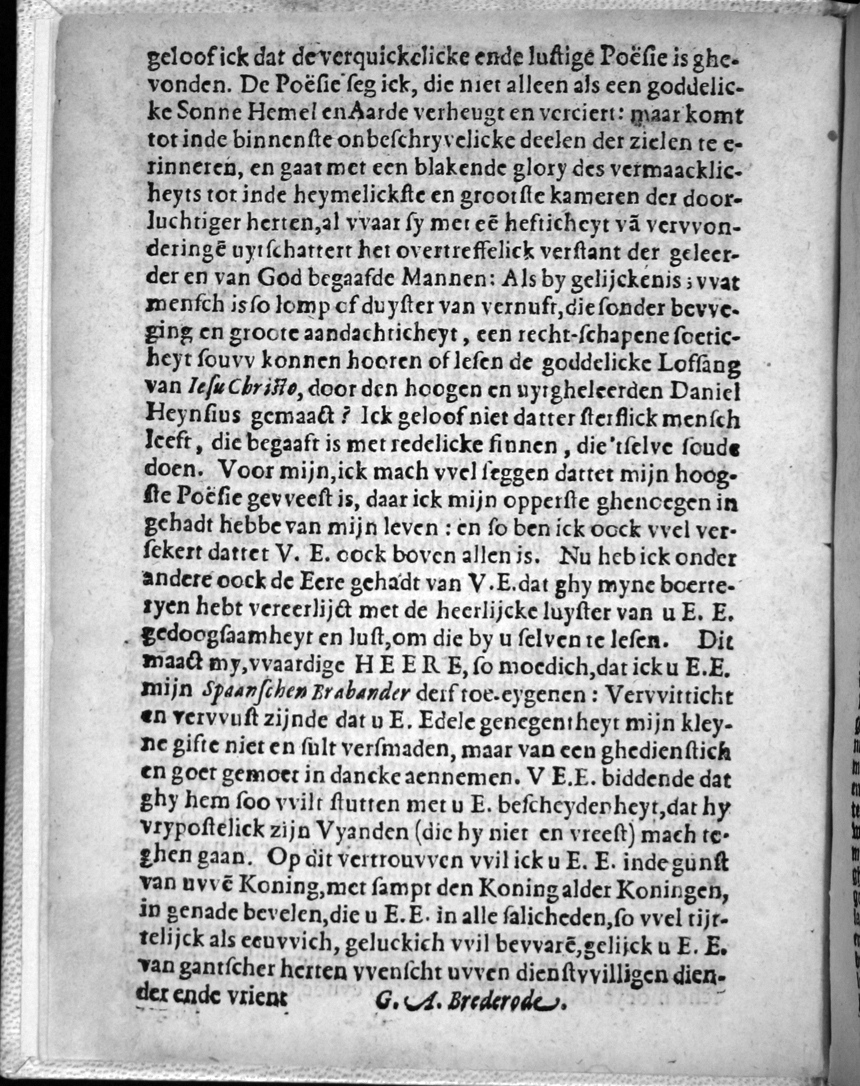 geloof ick dat de verquickelicke ende lustige Poësie is ghe-
vonden. De Poësie seg ick, die niet alleen als een goddelic-
ke Sonne Hemel en Aarde verheugt en verciert: maar komt
tot inde binnenste onbeschryvelicke deelen der zielen te e-
rinneren, en gaat met een blakende glory des vermaacklic-
heyts tot inde heymelickste en grootste kameren der door-
luchtiger herten, al vvaar sy met eē hefticheyt vā vervvon-
deringē uytschattert het overtreffelick verstant der geleer-
der en van God begaafde Mannen: Als by gelijckenis; vvat
mensch is so lomp of duyster van vernuft, die sonder bevve-
ging en groote aandachticheyt, een recht-schapene soetic-
heyt souvv konnen hooren of lesen de goddelicke Lofsang
van Iesu Christo, door den hoogen en uytgheleerden Daniel
Heynsius gemaact? Ick geloof niet datter sterflick mensch
leeft, die begaaft is met redelicke sinnen, die 'tselve soude
doen. Voor mijn, ick mach vvel seggen dattet mijn hoog-
ste Poësie gevveest is, daar ick mijn opperste ghenoegen in
gehadt hebbe van mijn leven: en so ben ick oock vvel ver-
sekert dattet V. E. oock boven allen is. Nu heb ick onder
andere oock de Eere gehadt van V.E. dat ghy myne boerte-
ryen hebt vereerlijct met de heerlijcke luyster van u E. E.
gedoogsaamheyt en lust, om die by u selven te lesen. Dit
maact my, vvaardige HEERE, so moedich, dat ick u E.E.
mijn Spaanschen Brabander derf toe-eygenen: Vervvitticht
en vervvust zijnde dat u E. Edele genegentheyt mijn kley-
ne gifte niet en sult versmaden, maar van een ghedienstich
en goet gemoet in dancke aennemen. V E.E. biddende dat
ghy hem soo vvilt stutten met u E. bescheydenheyt, dat hy
vrypostelick zijn Vyanden (die hy niet en vreest) mach te-
ghen gaan. Op dit vertrouvven vvil ick u E. E. inde gunst
van uvvē Koning, met sampt den Koning alder Koningen,
in genade bevelen, die u E.E. in alle salicheden, so vvel tijt-
telijck als eeuvvich, geluckich vvil bevvarē, gelijck u E. E.
van gantscher herten vvenscht uvven dienstvvilligen dien-
der ende vrient G. A. Brederode.